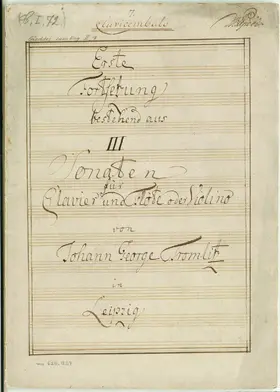 7.
Clavicembalo
Erste
Fortsetzung
bestehend aus
III
Sonaten
für
Clavier und Flöte oder Violino
von
Johann George Tromlitz
in
Leipzig